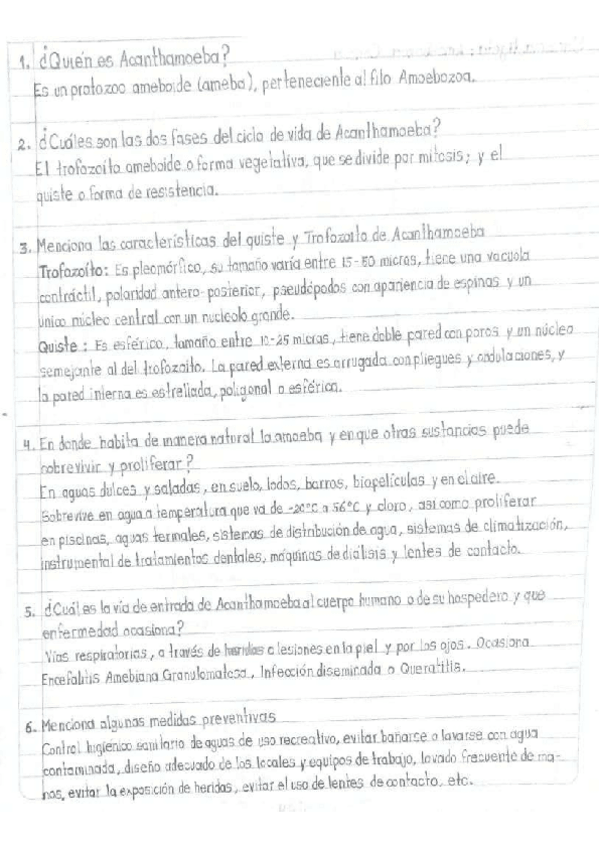 1. ¿Quién es Acanthamoeba?
Es un protozoo ameboide (ameba), perteneciente al filo Amoebozoa.
2. ¿Cuáles son las dos fases del ciclo de vida de Acanthamoeba?
El trofozoito ameboide o forma vegetativa, que se divide por mitosis; y el
quiste o forma de resistencia.
3. Menciona las características del quiste y Trofozoito de Acanthamoeba
Trofozoíto: Es pleomórfico, su tamaño varía entre 15-50 micras, tiene una vacuola
contráctil, polaridad antero-posterior, pseudópodos con apariencia de espinas y un
unico núcleo central con un nucleolo grande.
Quiste: Es esférico, tamaño entre 10-25 micras, tiene doble pared con poros y un núcleo
semejante al del trofozoito. La pared externa es arrugada con pliegues y ondulaciones, y
la pared interna es estrellada, poligonal o esférica.
4. En donde habita de manera natural la amoeba y en que otras sustancias puede
sobrevivir y proliferar?
En aguas dulces y saladas, en suelo, lodos, barros, biopelículas y en el aire.
Sobrevive en agua a temperatura que va de -20°C a 56°C y cloro, así como proliferar
en piscinas, aguas termales, sistemas de distribución de agua, sistemas de climatización,
instrumental de tratamientos dentales, máquinas de diálisis y lentes de contacto.
5. ¿Cuál es la vía de entrada de Acanthamoeba al cuerpo humano o de su hospedero y que
enfermedad ocasiona?
Vías respiratorias, a través de heridas o lesiones en la piel y por los ojos. Ocasiona
Encefalitis Amebiana Granulomatosa, Infección diseminada o Queratitis.
6. Menciona algunas medidas preventivas
Control higiénico sanitario de aguas de uso recreativo, evitar bañarse o lavarse con agua
contaminada, diseño adecuado de los locales y equipos de trabajo, lavado frecuente de ma-
nos, evitar la exposición de heridas, evitar el uso de lentes de contacto, etc.